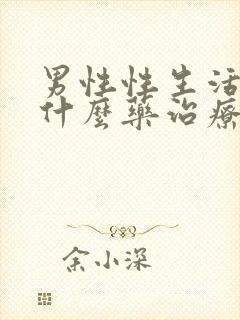 男性性生活
什麼藥治療
余小深